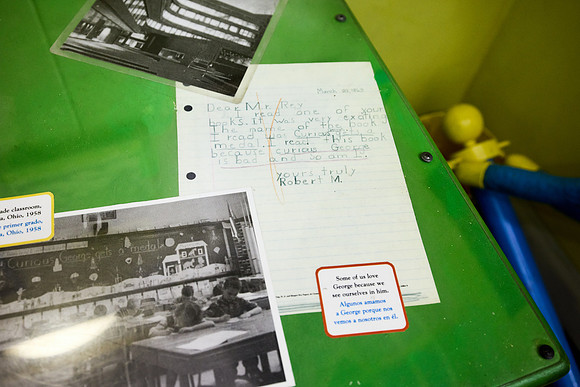 March
Dear Mr. Rey
I read one of your
books. It was very exciting
The name of the book
I read was Curious gets a
medal. I read this book
because curious George
is bad and so am I.
yours truly
Robert M.
ade classroom,
a, Ohio, 1958
primer grado,
a, Ohio, 1958
Curious George gets a medal
Some of us love
George because we
see ourselves in him.
Algunos amamos
a George porque nos
vemos a nosotros en él.